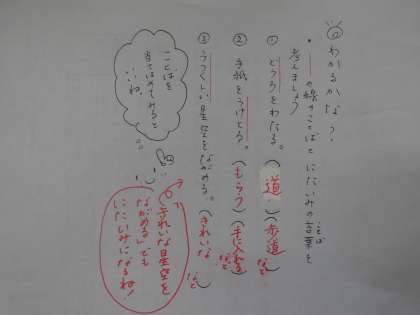 わかるかな?
・――の線のことばとにたいみの言葉を
考えましょう
ことば
① どうろをわたる。(道)(歩道など)
② 手紙をうけとる。(もらう)(手に入れるなど)
③ うつくしい星空をながめる。(きれいななど)
ことばを
当てはめてみると
いいね
きれいな星空を
ながめる」でも
にたいみになるね!